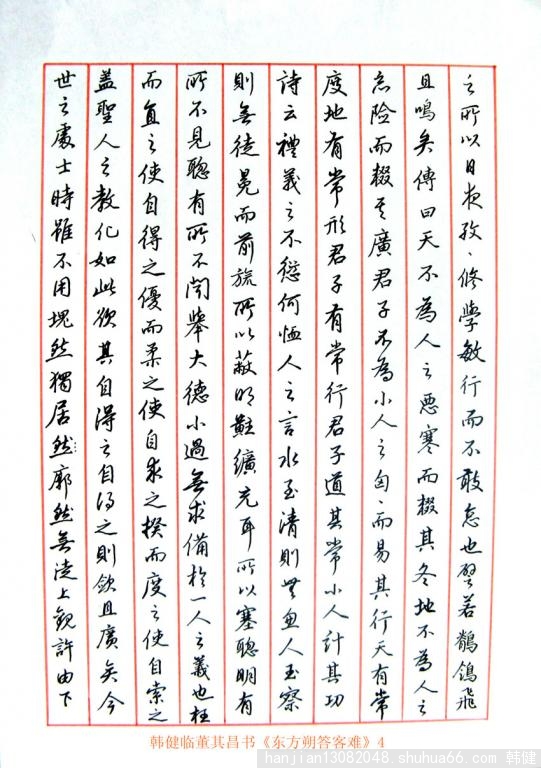 之所以日夜孜、修學敏行而不敢怠也譬若鶺鴒飛
且鳴矣傳曰天不為人之惡寒而輟其冬地不為人之
惡險而輟其廣君子不為小人之匈、而易其行天有常
度地有常形君子有常行君子道其常小人計其功
詩云禮義之不愆何恤人之言水至清則無魚人至察
則無徒冕而前旒所以蔽明黈纊充耳所以塞聰明有
所不見聰有所不聞舉大德小過無求備於一人之義也枉
而直之使自得之優而柔之使自求之揆而度之使自索之
蓋聖人之教化如此欲其自得之自得之則敏且廣矣今
世之處士時雖不用塊然獨居然廓然無徒上觀許由下
韩健临董其昌书《东方朔答客难》4
hanjian13082048.shuhua66.com 韩健